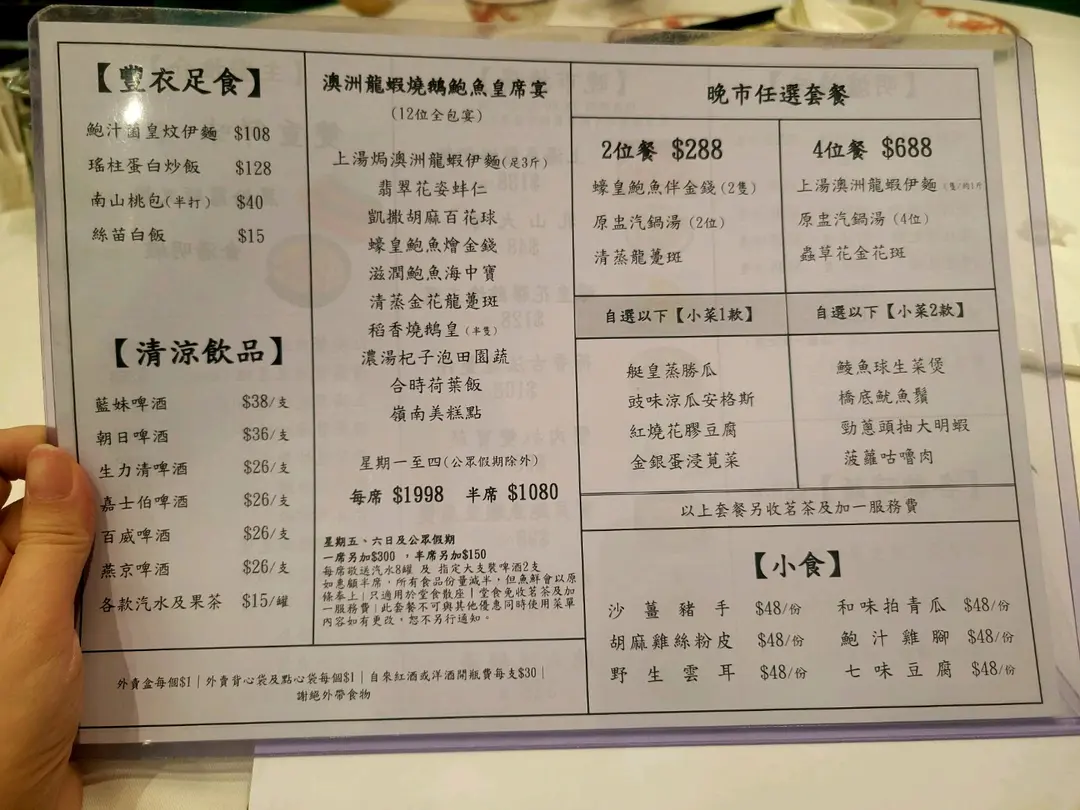 【豐衣足食】
鮑汁菌皇炆伊麵 $108
瑤柱蛋白炒飯 $128
南山桃包(半打) $40
絲苗白飯 $15
【清涼飲品】
藍妹啤酒 $38/支
朝日啤酒 $36/支
生力清啤酒 $26/支
嘉士伯啤酒 $26/支
百威啤酒 $26/支
燕京啤酒 $26/支
各款汽水及果茶 $15/罐
澳洲龍蝦燒鵝鮑魚皇席宴
(12位全包宴)
上湯焗澳洲龍蝦伊麵(足3斤)
翡翠花姿蚌仁
凱撒胡麻百花球
蠔皇鮑魚燴金錢
滋潤鮑魚海中寶
清蒸金花龍躉斑
稻香燒鵝皇(半隻)
濃湯杞子泡田園蔬
合時荷葉飯
嶺南美糕點
星期一至四(公眾假期除外)
每席 $1998 半席 $1080
星期五、六日及公眾假期
一席另加$300 ，半席另加$150
每席敬送汽水8罐 及 指定大支裝啤酒2支
如惠顧半席，所有食品份量減半，但魚鮮會以原
條奉上|只適用於堂食散座|堂食免收茗茶及加
一服務費|此套餐不可與其他優惠同時使用菜單
內容如有更改，恕不另行通知。
外賣盒每個$1|外賣背心袋及點心袋每個$1|自來紅酒或洋酒開瓶費每支$30|
謝絕外帶食物
晚市任選套餐
2位餐 $288
蠔皇鮑魚伴金錢(2隻)
原盅汽鍋湯(2位)
清蒸龍躉斑
自選以下【小菜1款】
艇皇蒸勝瓜
豉味涼瓜安格斯
紅燒花膠豆腐
金銀蛋浸莧菜
4位餐 $688
上湯澳洲龍蝦伊麵(隻/約1斤
原盅汽鍋湯(4位)
蟲草花金花斑
自選以下【小菜2款】
鯪魚球生菜煲
橋底魷魚鬚
勁蔥頭抽大明蝦
菠蘿咕嚕肉
以上套餐另收茗茶及加一服務費
【小食】
沙薑豬手 $48/份 和味拍青瓜 $48/份
胡麻雞絲粉皮 $48/份 鮑汁雞腳 $48/份
野生雲耳 $48/份 七味豆腐 $48/份